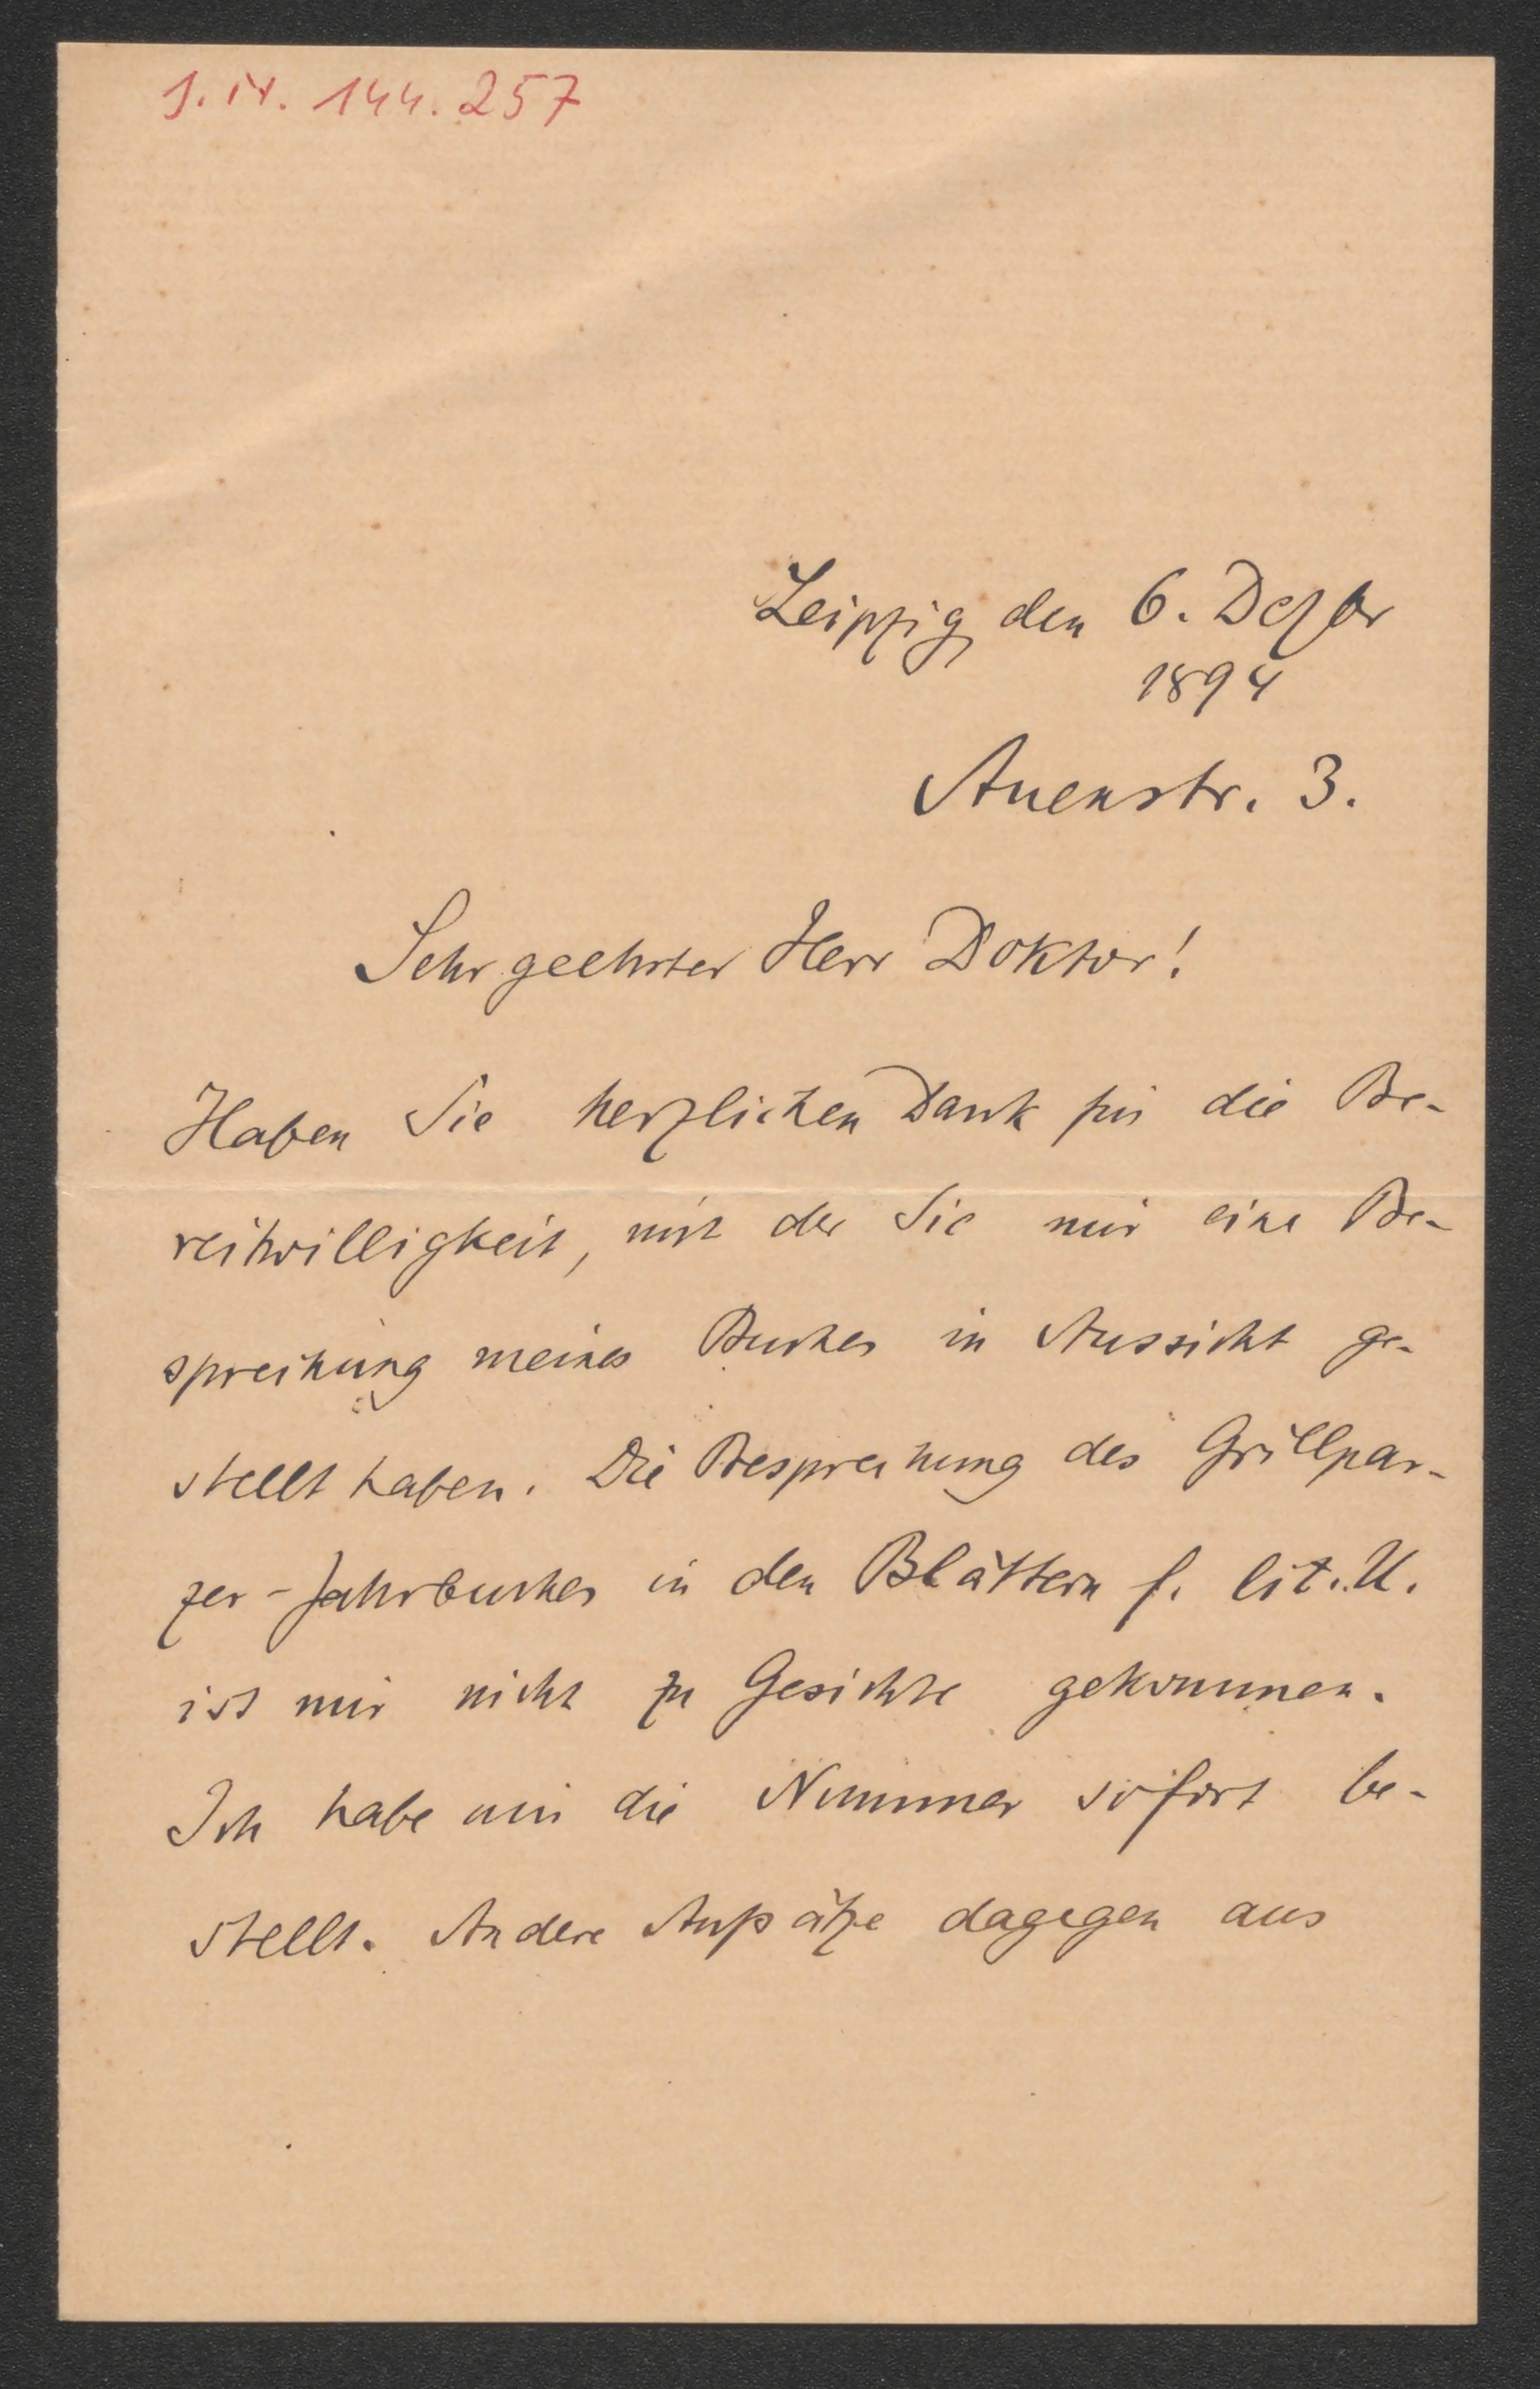 J. N. 144.257
Leipzig, den 6. Dezbr
1894
Auenstr. 3.
Sehr geehrter Herr Doktor!
Haben Sie herzlichen Dank für die Be-
reitwilligkeit, mit der Sie mir eine Be-
sprechung meines Buches in Aussicht ge-
stellt haben. Die Besprechung des Grillpar-
zer-Jahrbuches in den Blättern f. lit. U.
ist mir nicht zu Gesichte gekommen.
Ich habe mir die Nummer sofort be-
stellt. Andere Aufsätze dagegen aus